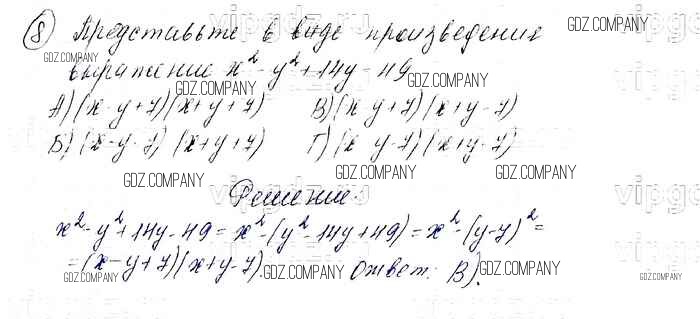 8) Представьте в виде произведения
выражение x² - y² + 14y - 49
А) (x - y + 7)(x + y + 7) В) (x y + 7)(x + y - 7)
Б) (x - y - 7)(x + y + 7) Г) (x y - 7)(x + y - 7)
Решение:
x² - y² + 14y - 49 = x² - (y² - 14y + 49) = x² - (y - 7)² =
= (x - y + 7)(x + y - 7). Ответ: В).
GDZ.COMPANY
GDZ.COMPANY
GDZ.COMPANY
GDZ.COMPANY
GDZ.COMPANY
GDZ.COMPANY
GDZ.COMPANY
GDZ.COMPANY
GDZ.COMPANY
GDZ.COMPANY
GDZ.COMPANY
vipgdz.ru
vipgdz.ru